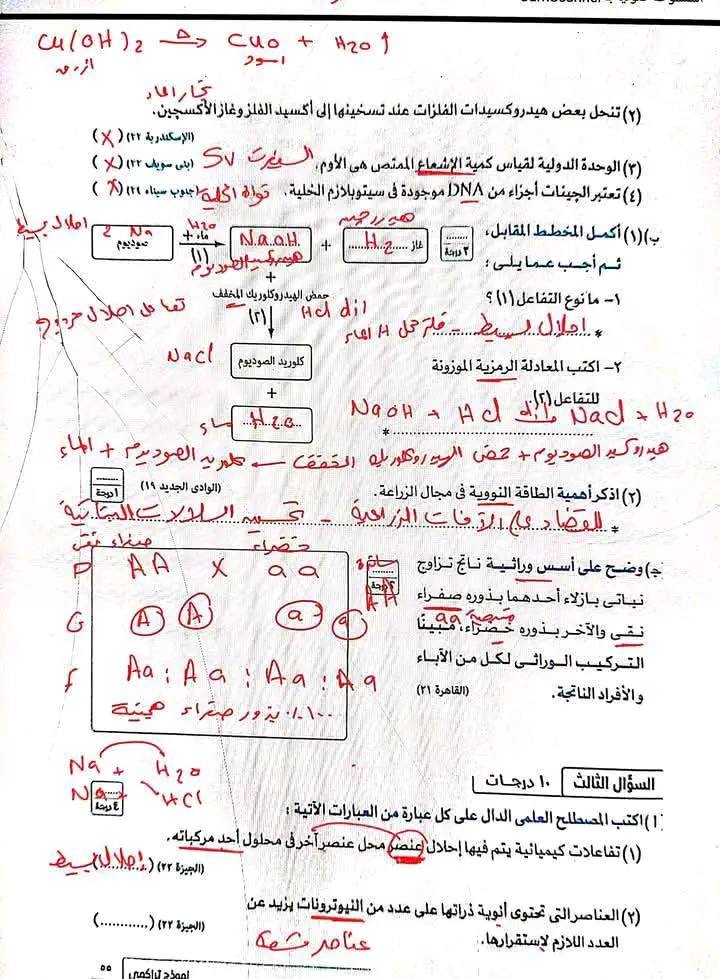 Cu(OH)₂ —Δ→ CuO + H₂O ↑
أزرق أسود
بخار الماء
(٢) تنحل بعض هيدروكسيدات الفلزات عند تسخينها إلى أكسيد الفلز وغاز الأكسجين.
(الإسكندرية ٢٢) (X)
(٣) الوحدة الدولية لقياس كمية الإشعاع الممتص هى الأوم. السيفرت SV (بنى سويف ٢٣) (X)
(٤) تعتبر الجينات أجزاء من DNA موجودة فى سيتوبلازم الخلية. نواة الخلية (جنوب سيناء ٢٤) (X)
ب) (١) أكمل المخطط المقابل، ٣ درجة
ثم أجب عما يلى :
إحلال بسيط
2 Na
صوديوم
H₂O
+ ماء
(١)
NaOH
هيدروكسيد الصوديوم
+
هيدروجين
غاز H₂
+
حمض الهيدروكلوريك المخفف
HCl dil
(٢)
تفاعل إحلال مزدوج
NaCl
كلوريد الصوديوم
+
H₂O
ماء
١- ما نوع التفاعل (١) ؟
* إحلال بسيط - فلز محل H الماء
٢- اكتب المعادلة الرمزية الموزونة
للتفاعل (٢)
* NaOH + HCl —dil→ NaCl + H₂O
هيدروكسيد الصوديوم + حمض الهيدروكلوريك المخفف ← كلوريد الصوديوم + الماء
(٢) اذكر أهمية الطاقة النووية فى مجال الزراعة. (الوادى الجديد ١٩) ١ درجة
* القضاء على الآفات الزراعية - تحسين السلالات النباتية
ج) وضح على أسس وراثية ناتج تزاوج
نباتى بازلاء أحدهما بذوره صفراء
نقى والآخر بذوره خضراء، مبينًا
التركيب الوراثى لكل من الآباء
والأفراد الناتجة. (القاهرة ٢١)
٢ درجة
سائدة
AA
متنحية aa
صفراء نقى خضراء
P AA X aa
G A A a a
F Aa : Aa : Aa : Aa
١٠٠٪ بذور صفراء هجينة
السؤال الثالث ١٠ درجات
Na + H₂O
Na + HCl
٤ درجة
أ) اكتب المصطلح العلمى الدال على كل عبارة من العبارات الآتية :
(١) تفاعلات كيميائية يتم فيها إحلال عنصر محل عنصر آخر فى محلول أحد مركباته.
(الجيزة ٢٢) (إحلال بسيط)
(٢) العناصر التى تحتوى أنوية ذراتها على عدد من النيوترونات يزيد عن
العدد اللازم لإستقرارها. (الجيزة ٢٢) (............)
عناصر مشعة
نموذج تراكمى
٥٥